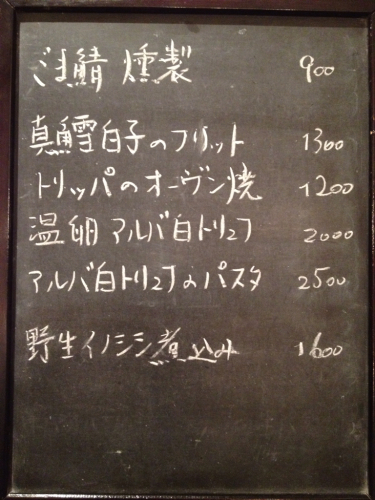 ごま鯖 燻製 900
真鱈白子のフリット 1300
トリッパのオーヴン焼 1200
温卵 アルバ白トリュフ 2000
アルバ白トリュフのパスタ 2500
野生イノシシ煮込み 1600